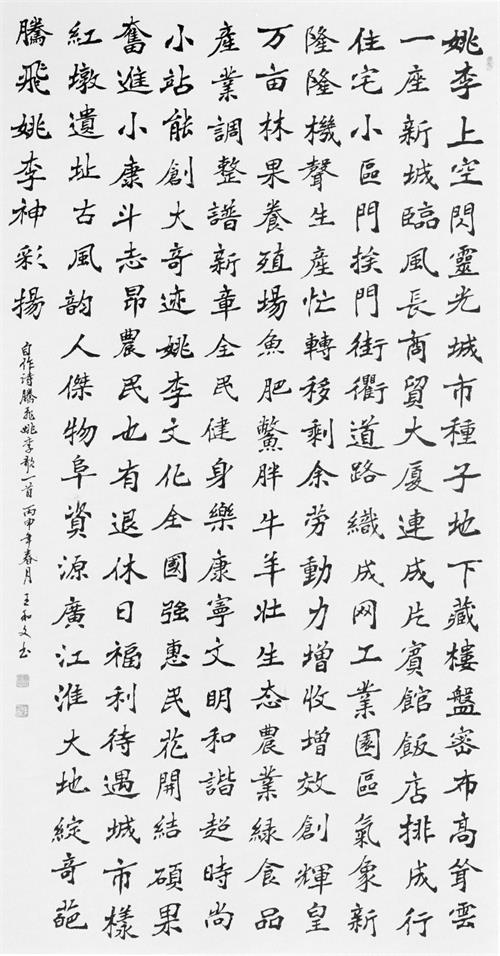 姚李上空閃靈光城市種子地下藏樓盤密布高聳雲
一座新城臨風長商貿大厦連成片賓館飯店排成行
住宅小區門挨門街衢道路織成网工業園區氣象新
隆隆機聲生産忙轉移剩余劳動力增收增效創輝皇
万亩林果養殖場魚肥鱉胖牛羊壮生态農業緑食品
産業調整譜新章全民健身樂康寧文明和諧超時尚
小站能創大奇迹姚李文化全國强惠民花開結碩果
奮進小康斗志昂農民也有退休日福利待遇城市樣
紅墩遺址古風韵人傑物阜資源廣江淮大地綻奇葩
騰飛姚李神彩揚
自作诗騰飛姚李歌一首丙申年春月王和文书